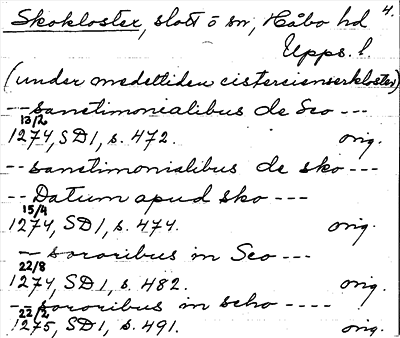 4.
Skokloster, slott o sn, Håbo hd
Upps. l.
(under medeltiden cistercienserkloster)
-- sanctimonialibus de Sco ---
13/2
1274, SD 1, s. 472. orig.
-- sanctimonialibus de sko ---
-- Datum apud sko ---
15/4
1274, SD 1, s. 474. orig.
-- sororibus in Sco ---
22/8
1274, SD 1, s. 482. orig.
-- sororibus in scho ----
22/2
1275, SD 1, s. 491. orig.